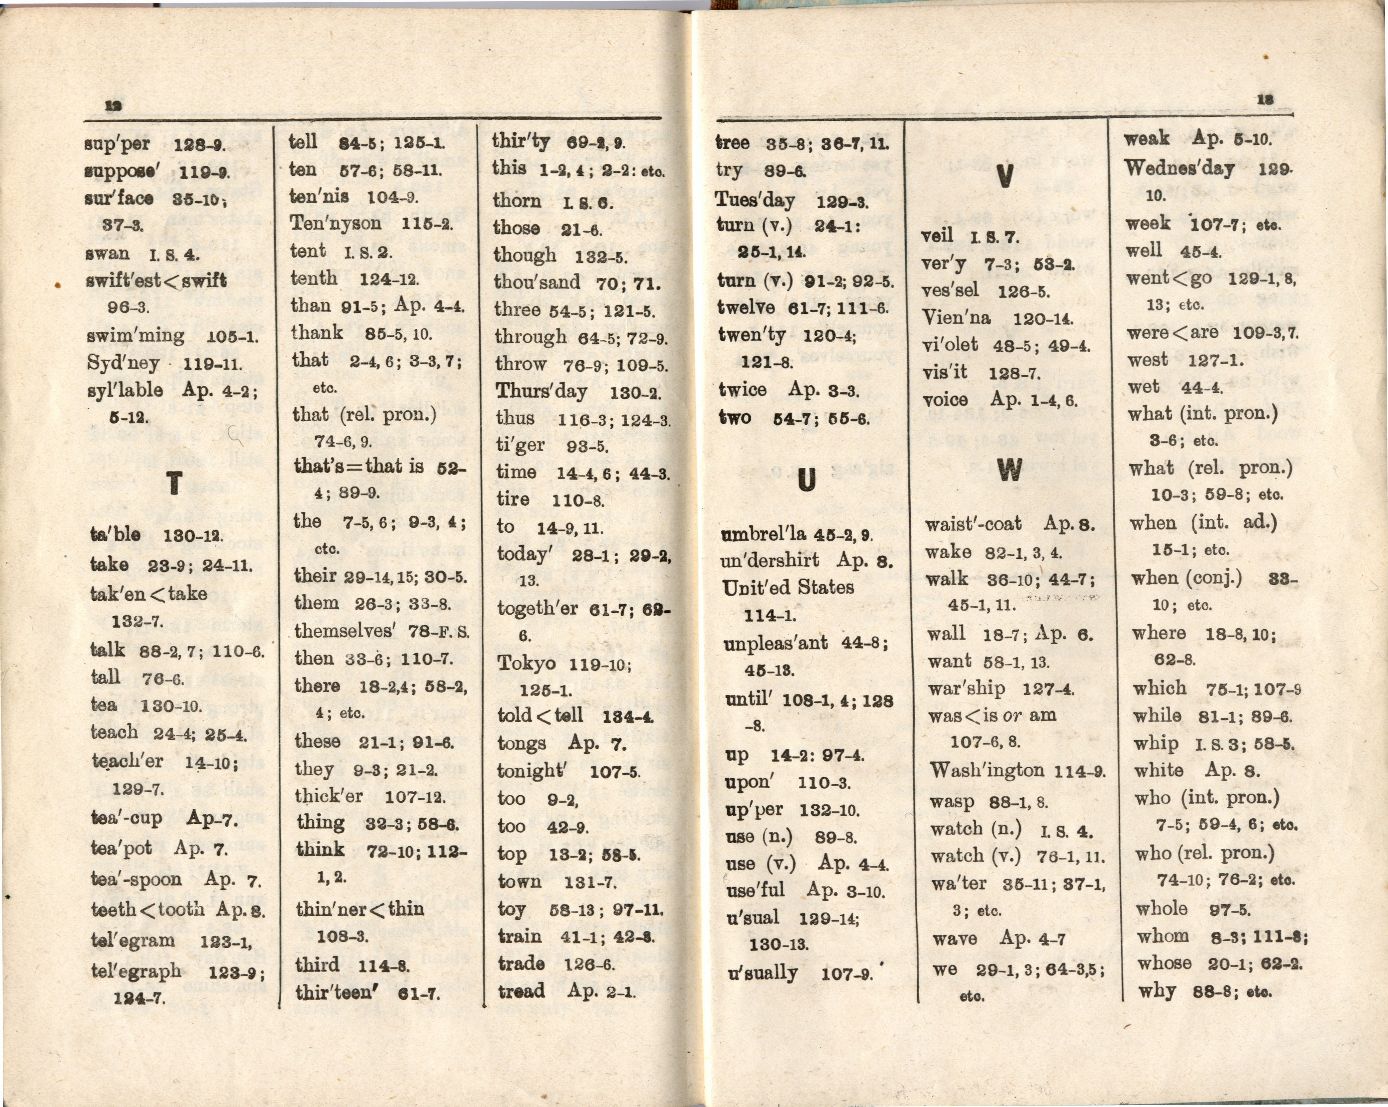 12
sup'per 128-9.
suppose' 119-9.
sur'face 35-10;
37-3.
swan I. S. 4.
swift'est<swift
96-3.
swim'ming 105-1.
Syd'ney 119-11.
syl'lable Ap. 4-2;
5-12.
T
ta'ble 130-12.
take 23-9; 24-11.
tak'en<take
132-7.
talk 88-2, 7; 110-6.
tall 76-6.
tea 130-10.
teach 24-4; 25-4.
teach'er 14-10;
129-7.
tea'-cup Ap-7.
tea'pot Ap. 7.
tea'-spoon Ap. 7.
teeth<tooth Ap. 8.
tel'egram 123-1,
tel'egraph 123-9;
124-7.
tell 84-5; 125-1.
ten 57-6; 58-11.
ten'nis 104-9.
Ten'nyson 115-2.
tent I. S. 2.
tenth 124-12.
than 91-5; Ap. 4-4.
thank 85-5, 10.
that 2-4, 6; 3-3, 7;
etc.
that (rel. pron.)
74-6, 9.
that's=that is 52-
4; 89-9.
the 7-5, 6; 9-3, 4;
etc.
their 29-14, 15; 30-5.
them 26-3; 33-8.
themselves' 78-F. S.
then 33-6; 110-7.
there 18-2,4; 58-2,
4; etc.
these 21-1; 91-6.
they 9-3; 21-2.
thick'er 107-12.
thing 32-3; 58-6.
think 72-10; 112-
1, 2.
thin'ner<thin
108-3.
third 114-8.
thir'teen' 61-7.
thir'ty 69-2, 9.
this 1-2, 4; 2-2: etc.
thorn I. S. 6.
those 21-6.
though 132-5.
thou'sand 70; 71.
three 54-5; 121-5.
through 64-5; 72-9.
throw 76-9; 109-5.
Thurs'day 130-2.
thus 116-3; 124-3.
ti'ger 93-5.
time 14-4, 6; 44-3.
tire 110-8.
to 14-9, 11.
today' 28-1; 29-2,
13.
togeth'er 61-7; 62-
6.
Tokyo 119-10;
125-1.
told<tell 134-4.
tongs Ap. 7.
tonight' 107-5.
too 9-2,
too 42-9.
top 13-2; 58-5.
town 131-7.
toy 58-13; 97-11.
train 41-1; 42-8.
trade 126-6.
tread Ap. 2-1.
13
tree 35-8; 36-7, 11.
try 89-6.
Tues'day 129-3.
turn (v.) 24-1:
25-1, 14.
turn (v.) 91-2; 92-5.
twelve 61-7; 111-6.
twen'ty 120-4;
121-8.
twice Ap. 3-3.
two 54-7; 55-6.
U
umbrel'la 45-2, 9.
un'dershirt Ap. 8.
Unit'ed States
114-1.
unpleas'ant 44-8;
45-13.
until' 108-1, 4; 128
-8.
up 14-2: 97-4.
upon' 110-3.
up'per 132-10.
use (n.) 89-8.
use (v.) Ap. 4-4.
use'ful Ap. 3-10.
u'sual 129-14;
130-13.
u'sually 107-9.
V
veil I. S. 7.
ver'y 7-3; 53-2.
ves'sel 126-5.
Vien'na 120-14.
vi'olet 48-5; 49-4.
vis'it 128-7.
voice Ap. 1-4, 6.
W
waist'-coat Ap. 8.
wake 82-1, 3, 4.
walk 36-10; 44-7;
45-1, 11.
wall 18-7; Ap. 6.
want 58-1, 13.
war'ship 127-4.
was<is or am
107-6, 8.
Wash'ington 114-9.
wasp 88-1, 8.
watch (n.) I. S. 4.
watch (v.) 76-1, 11.
wa'ter 35-11; 37-1,
3; etc.
wave Ap. 4-7
we 29-1, 3; 64-3,5;
etc.
weak Ap. 5-10.
Wednes'day 129-
10.
week 107-7; etc.
well 45-4.
went<go 129-1, 8,
13; etc.
were<are 109-3,7.
west 127-1.
wet 44-4.
what (int. pron.)
3-6; etc.
what (rel. pron.)
10-3; 59-8; etc.
when (int. ad.)
15-1; etc.
when (conj.) 33-
10; etc.
where 18-8, 10;
62-8.
which 75-1; 107-9
while 81-1; 89-6.
whip I. S. 3; 58-5.
white Ap. 8.
who (int. pron.)
7-5; 59-4, 6; etc.
who (rel. pron.)
74-10; 76-2; etc.
whole 97-5.
whom 8-3; 111-8;
whose 20-1; 62-2.
why 88-8; etc.